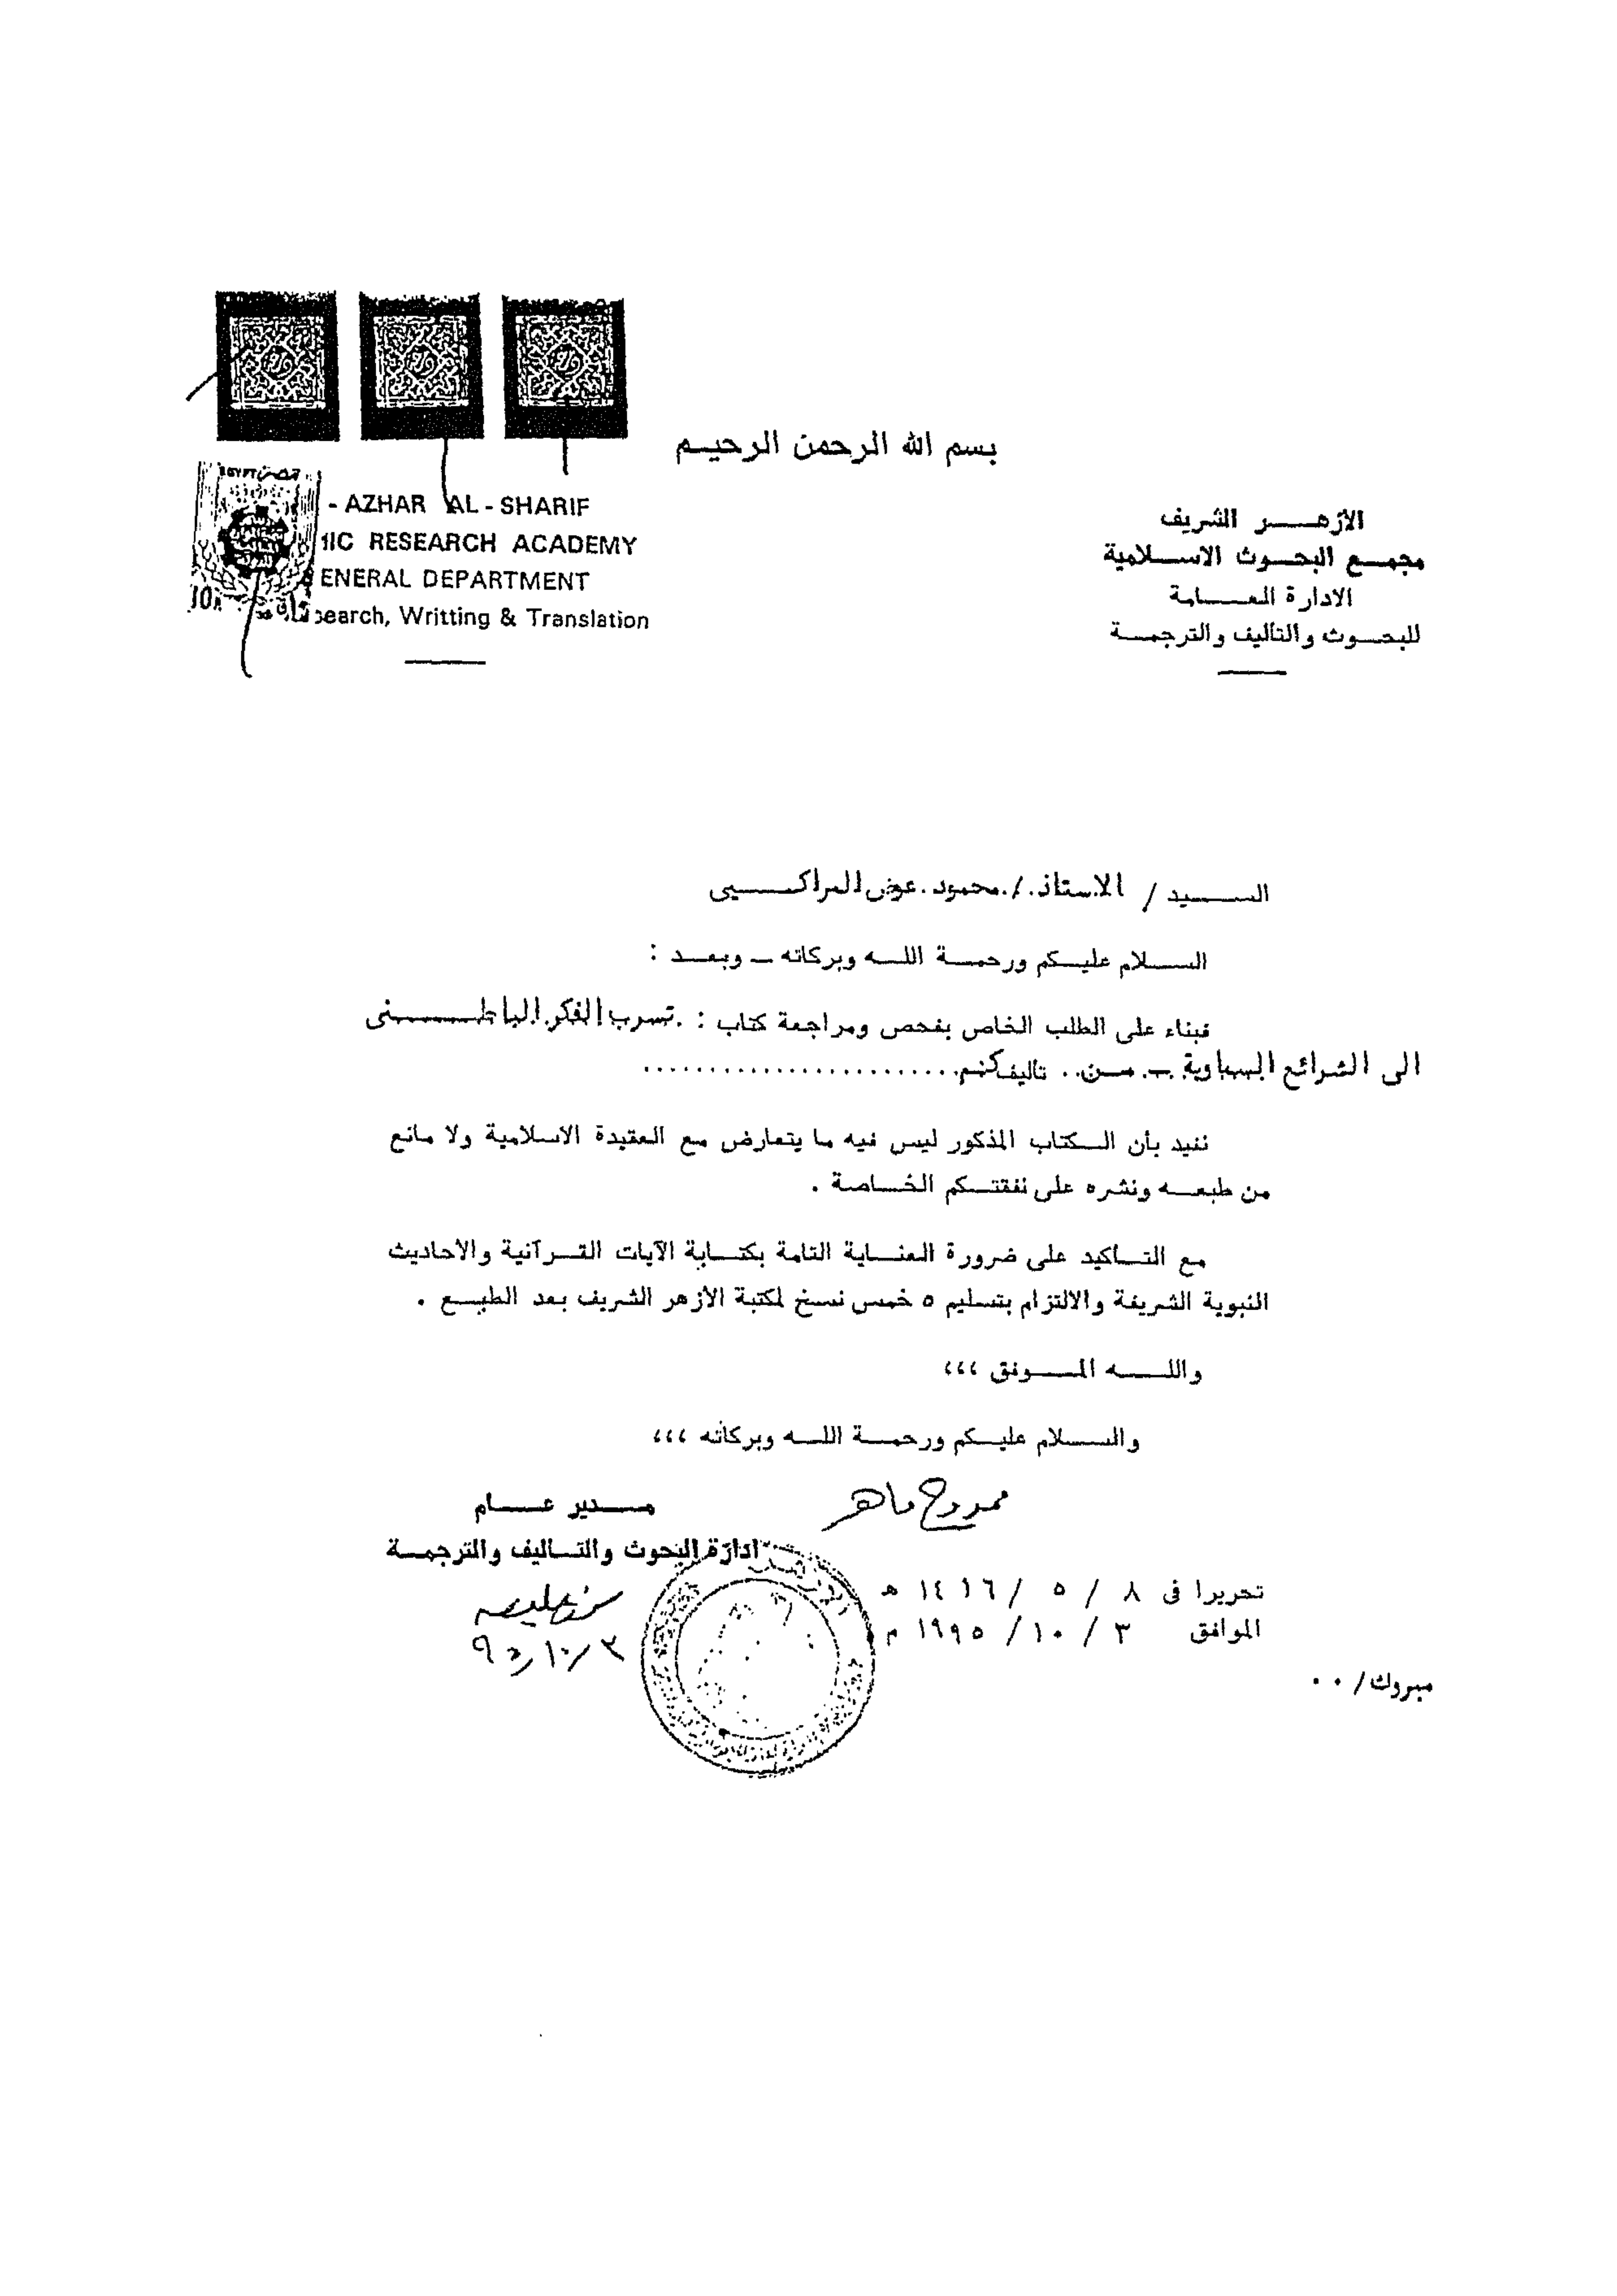 بسم الله الرحمن الرحيم
الأزهر الشريف
مجمع البحوث الاسلامية
الادارة العامة
للبحوث والتأليف والترجمة
EGYPT مصر
- AZHAR AL - SHARIF
RESEARCH ACADEMY
ENERAL DEPARTMENT
search, Writting & Translation
السيد / الاستاذ / محمود عوض المراكبى
السلام عليكم ورحمة الله وبركاته – وبعد :
فبناء على الطلب الخاص بفحص ومراجعة كتاب : تسرب الفكر الباطنى
الى الشرائع السماوية – من .. تأليفكنم ........................
نفيد بأن الكتاب المذكور ليس فيه ما يتعارض مع العقيدة الاسلامية ولا مانع
من طبعه ونشره على نفقتكم الخاصة .
مع التأكيد على ضرورة العناية التامة بكتابة الآيات القرآنية والاحاديث
النبوية الشريفة والالتزام بتسليم ٥ خمس نسخ لمكتبة الأزهر الشريف بعد الطبع .
والله الموفق ،،،
والسلام عليكم ورحمة الله وبركاته ،،،
ممدوح ماهر
مدير عام
ادارة البحوث والتأليف والترجمة
٩٥/١٠/٣
تحريرا فى ٨ / ٥ / ١٤١٦ ه
الموافق ٣ / ١٠ / ١٩٩٥ م
مبروك / ٠٠